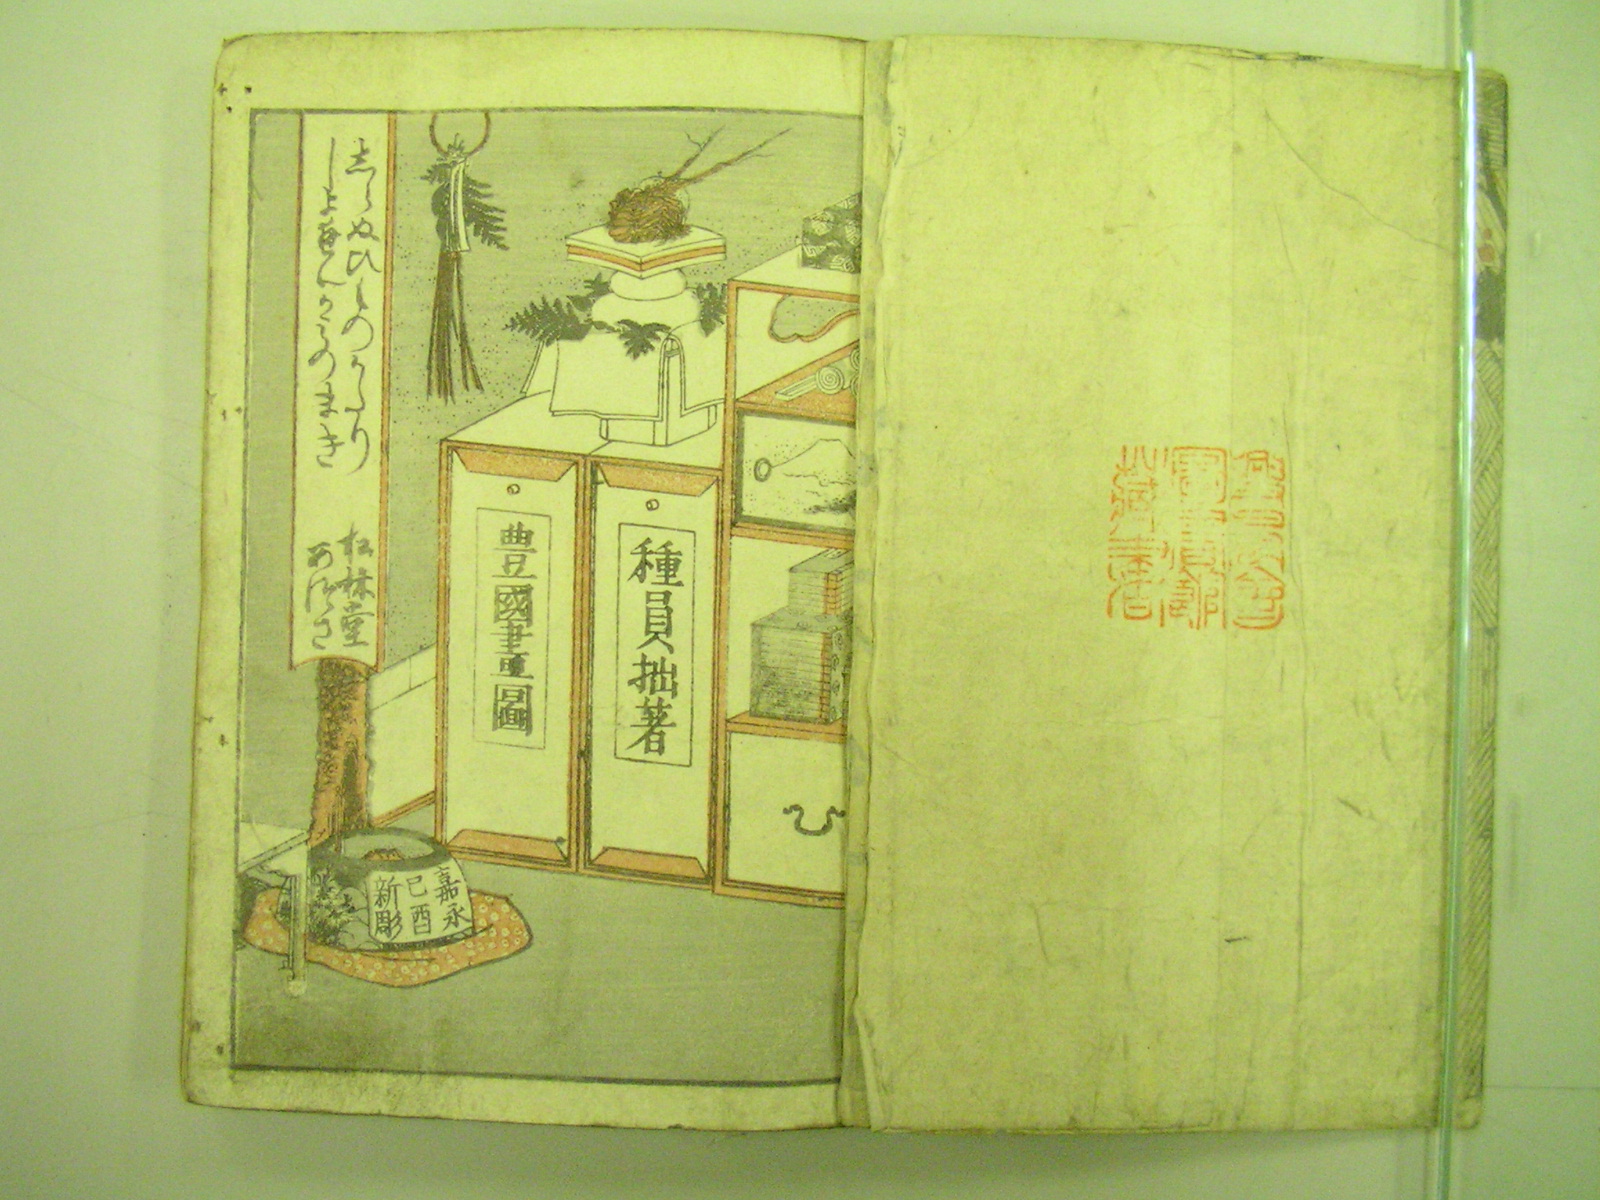 種員拙著
豊國畫圖
しらぬひものかたり
しよへんかみのまき
松林堂
あづさ
嘉永
己酉
新彫